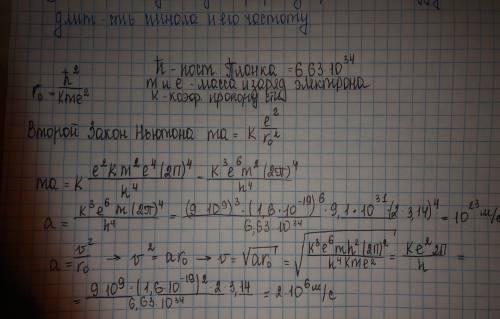 длит-сть цикла и его частоту
ħ - пост Планка = 6,63·10³⁴
r₀ = ħ²/Kme²
m и e - масса и заряд электрона
K - коэф. пропорц.
Второй Закон Ньютона ma = K e²/r₀²
ma = K e²K²m²e⁴(2π)⁴/h⁴ = K³e⁶m²(2π)⁴/h⁴
a = K³e⁶m(2π)⁴/h⁴ = (9·10⁹)³·(1,6·10⁻¹⁹)⁶·9,1·10³¹(2·3,14)⁴/6,63·10³⁴ = 10²³ м/с
a = v²/r₀ → v² = ar₀ → v = √ar₀ = √K³e⁶mh²(2π)²/h⁴Kme² = Ke²2π/h =
= 9·10⁹·(1,6·10⁻¹⁹)²·2·3,14/6,63·10³⁴ = 2·10⁶ м/с